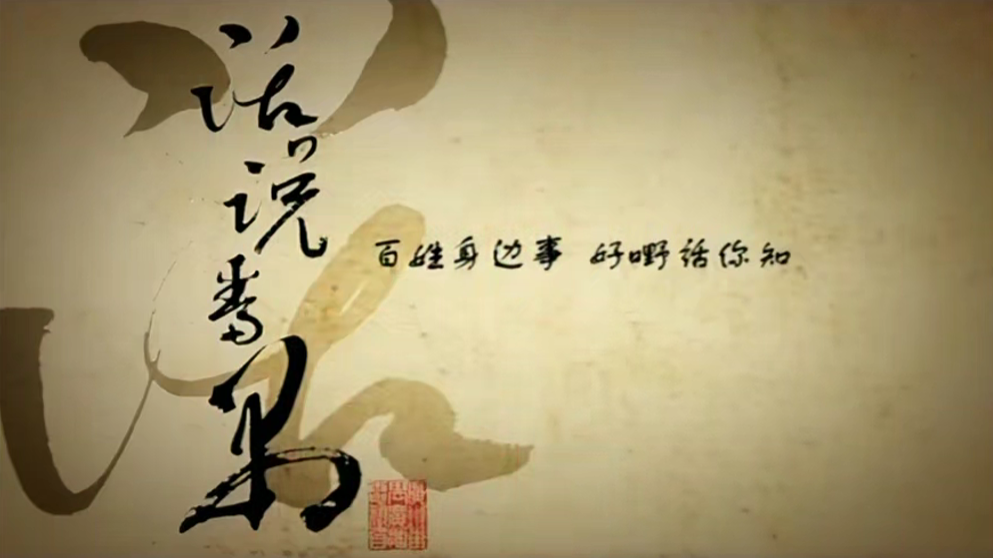 话说番禺
百姓身边事 好嘢话你知